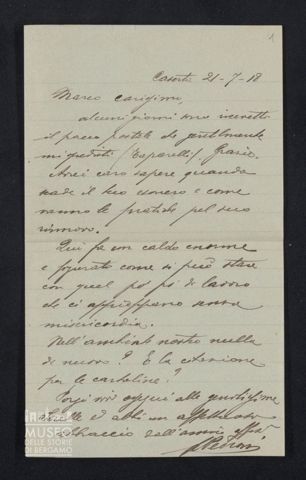 1
Caserta 21-7-18
Marco carissimo,
alcuni giorni sono ricevetti
il pacco postale che gentilmente
mi spedisti (Caparelli) Grazie.
Avrei caro sapere quando
scade il tuo esonero e come
vanno le pratiche pel suo
rinnovo.
Qui fa un caldo enorme
e figurati come si può stare
con quel po' po' di lavoro
che ci appioppano senza
misericordia.
Nell'ambiente nostro nulla
di nuovo? E la
per le cartoline?
Porgi miei ossequi alle
ed abbi un affettuoso
abbraccio dall'amico
MUSEO
DELLE STORIE
DI BERGAMO